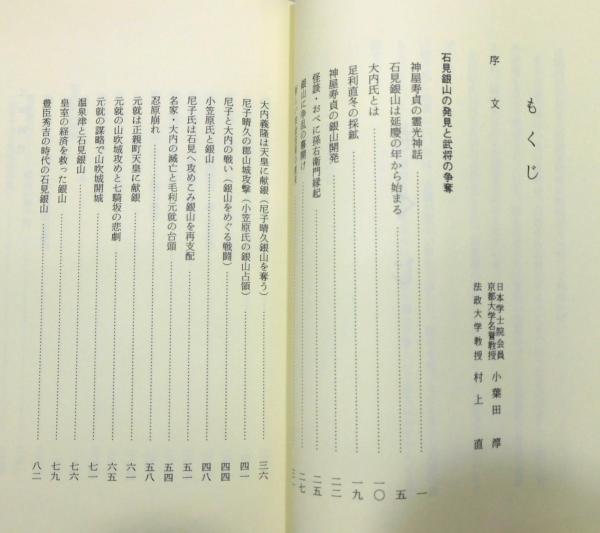 もくじ
序文
日本学士院会員
京都大学名誉教授 小葉田 淳
法政大学教授 村上 直
石見銀山の発見と武将の争奪
神屋寿貞の霊光神話 一
石見銀山は延慶の年から始まる 五
大内氏とは 一〇
足利直冬の採鉱 一九
神屋寿貞の銀山開発 二二
怪談・おべに孫右衛門縁起 二五
銀山に争乱の幕開け 二七
大内義隆は天皇に献銀(尼子晴久銀山を奪う) 三六
尼子晴久の郡山城攻撃(小笠原氏の銀山占領) 四一
尼子と大内の戦い(銀山をめぐる戦闘) 四四
小笠原氏と銀山 四八
尼子氏は石見へ攻めこみ銀山を再支配 五一
名家・大内の滅亡と毛利元就の台頭 五四
忍原崩れ 五八
元就は正親町天皇に献銀 六一
元就の山吹城攻めと七騎坂の悲劇 六五
元就の謀略で山吹城開城 七一
温泉津と石見銀山 七六
皇室の経済を救った銀山 七九
豊臣秀吉の時代の石見銀山 八二